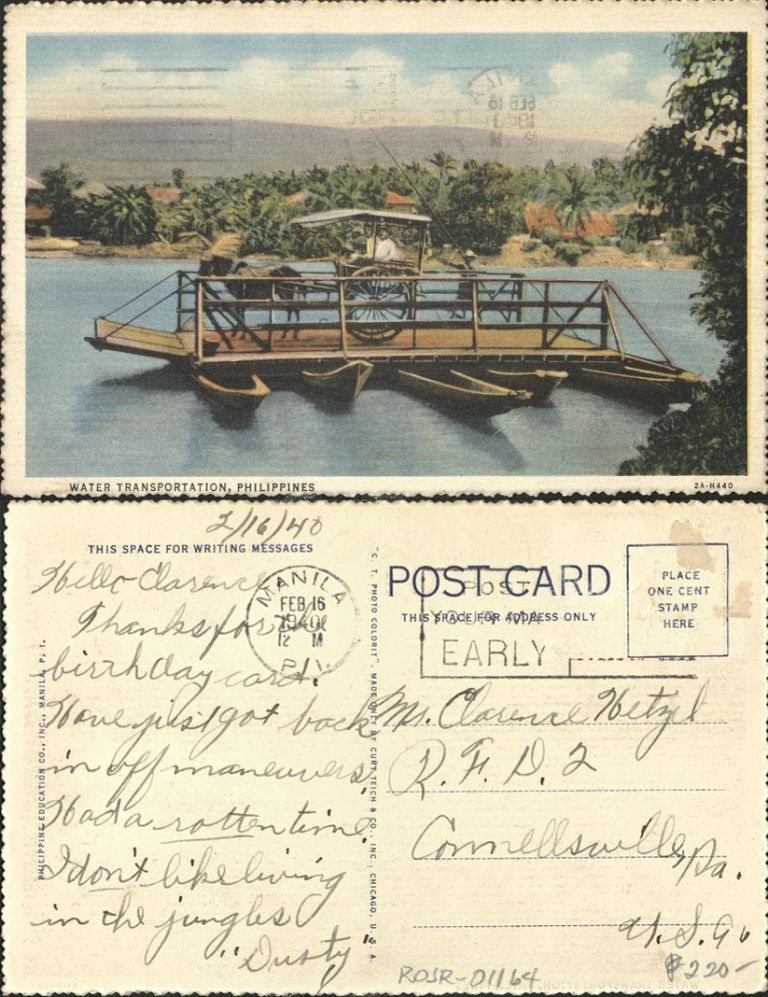 WATER TRANSPORTATION, PHILIPPINES
2A-H440
2/16/40
THIS SPACE FOR WRITING MESSAGES
Hello Clarence
Thanks for the
birthday card.
Have just got back
in off maneuvers.
Had a rotten time.
I don't like living
in the jungles
"Dusty"
MANILA
FEB 16
1940
12 M
P.I.
PHILIPPINE EDUCATION CO., INC., MANILA, P. I.
"C. T. PHOTO COLORIT". MADE ONLY BY CURT TEICH & CO., INC., CHICAGO, U. S. A.
POST CARD
THIS SPACE FOR ADDRESS ONLY
PLACE
ONE CENT
STAMP
HERE
POST
EARLY
Mr. Clarence Hetzel
R. F. D. 2
Connellsville, Pa.
U.S.A.
ROSR-01164
₱220-